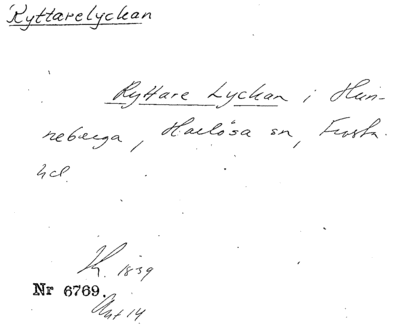 Ryttarelyckan
Ryttare Lyckan i Hun-
neberga, Harlösa sn, Frosta
hd.
K. 1839
Nr 6769.
Akt 14